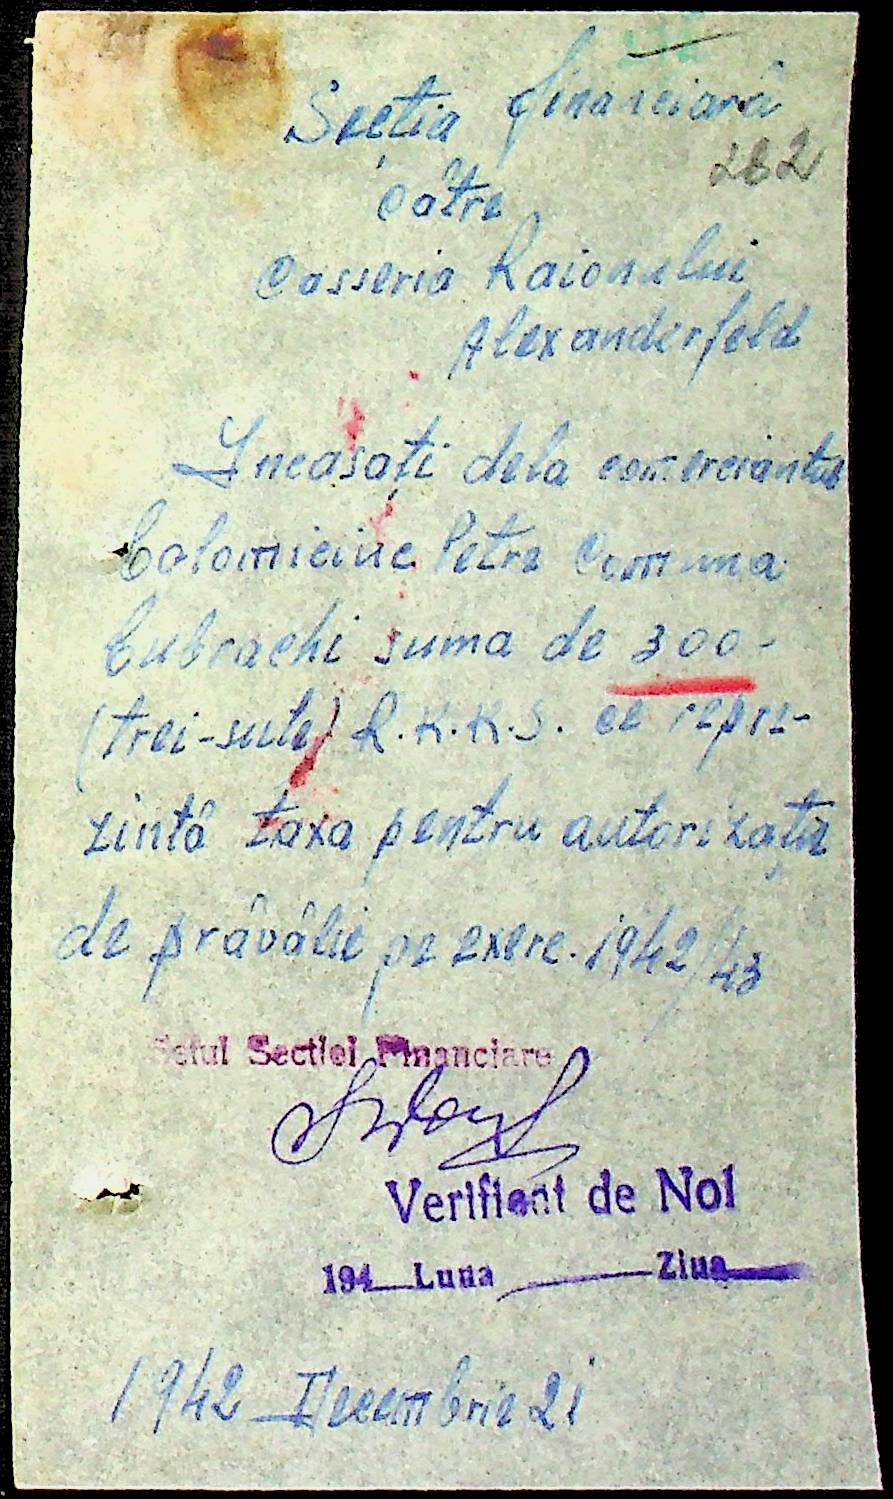 Secția financiară
282
către
Casseria Raionului
Alexanderfeld
Incasați dela comerciantul
Colomieiuc Petre Comuna
Cubrachi suma de 300-
(trei-sute) R.K.K.S. ce repre-
zintă taxa pentru autorizație
de prăvălie pe exerc. 1942/43
Seful Sectiei Financiare
Verificat de Noi
194 Luna Ziua
1942 Decembrie 21